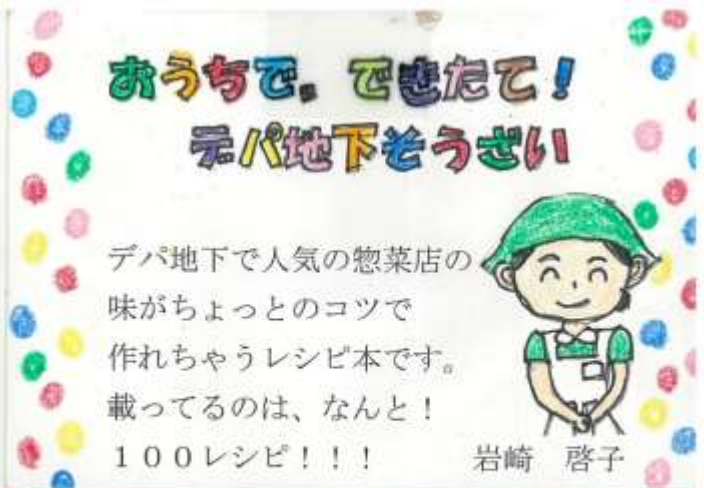 おうちで。できたて！
デパ地下そうざい
デパ地下で人気の惣菜店の
味がちょっとのコツで
作れちゃうレシピ本です。
載ってるのは、なんと！
１００レシピ！！！
岩崎　啓子